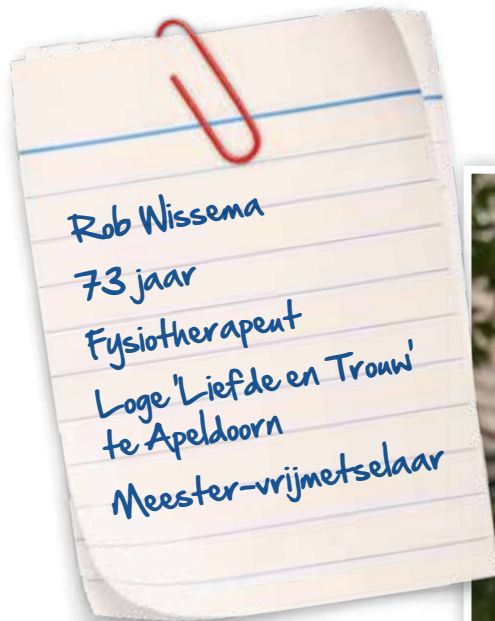 Rob Wissema
73 jaar
Fysiotherapeut
Loge 'Liefde en Trouw'
te Apeldoorn
Meester-vrijmetselaar